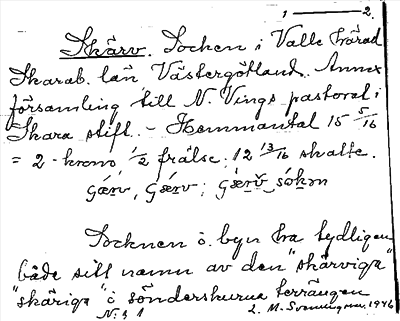 1 — 2.
Skärv. Socken i Valle härad
Skarab. län Västergötland. Annex
församling till N. Vings pastorat i
Skara stift. - Hemmantal 15 5/16
= 2 krono 1/2 frälse, 12 13/16 skatte.
Socknen o. byn ha tydligen
både sitt namn av den "skärviga"
"skäriga" o sönderskurna terrängen
N: 31 L. M. Svenungsson 1946